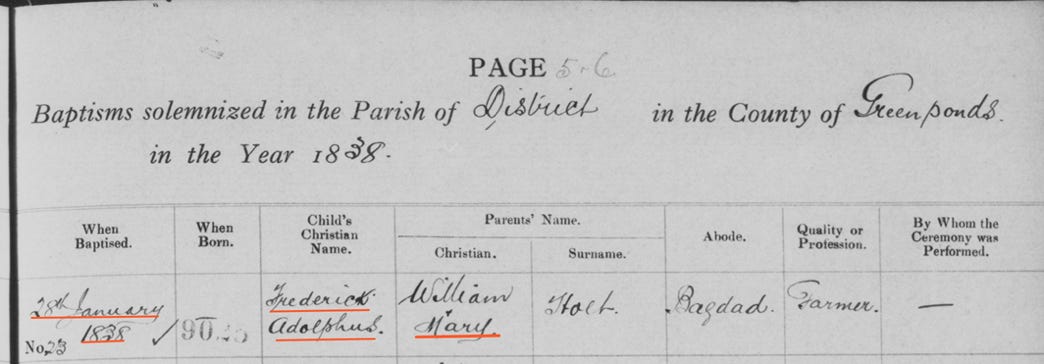 PAGE 5-6
Baptisms solemnized in the Parish of District in the County of Greenponds.
in the Year 1838.
When Baptised. When Born. Child's Christian Name. Parents' Name. Christian. Surname. Abode. Quality or Profession. By Whom the Ceremony was Performed.
28th January Frederick William Holt Bagdad. Farmer. —
1838 Adolphus. Mary.
No. 23